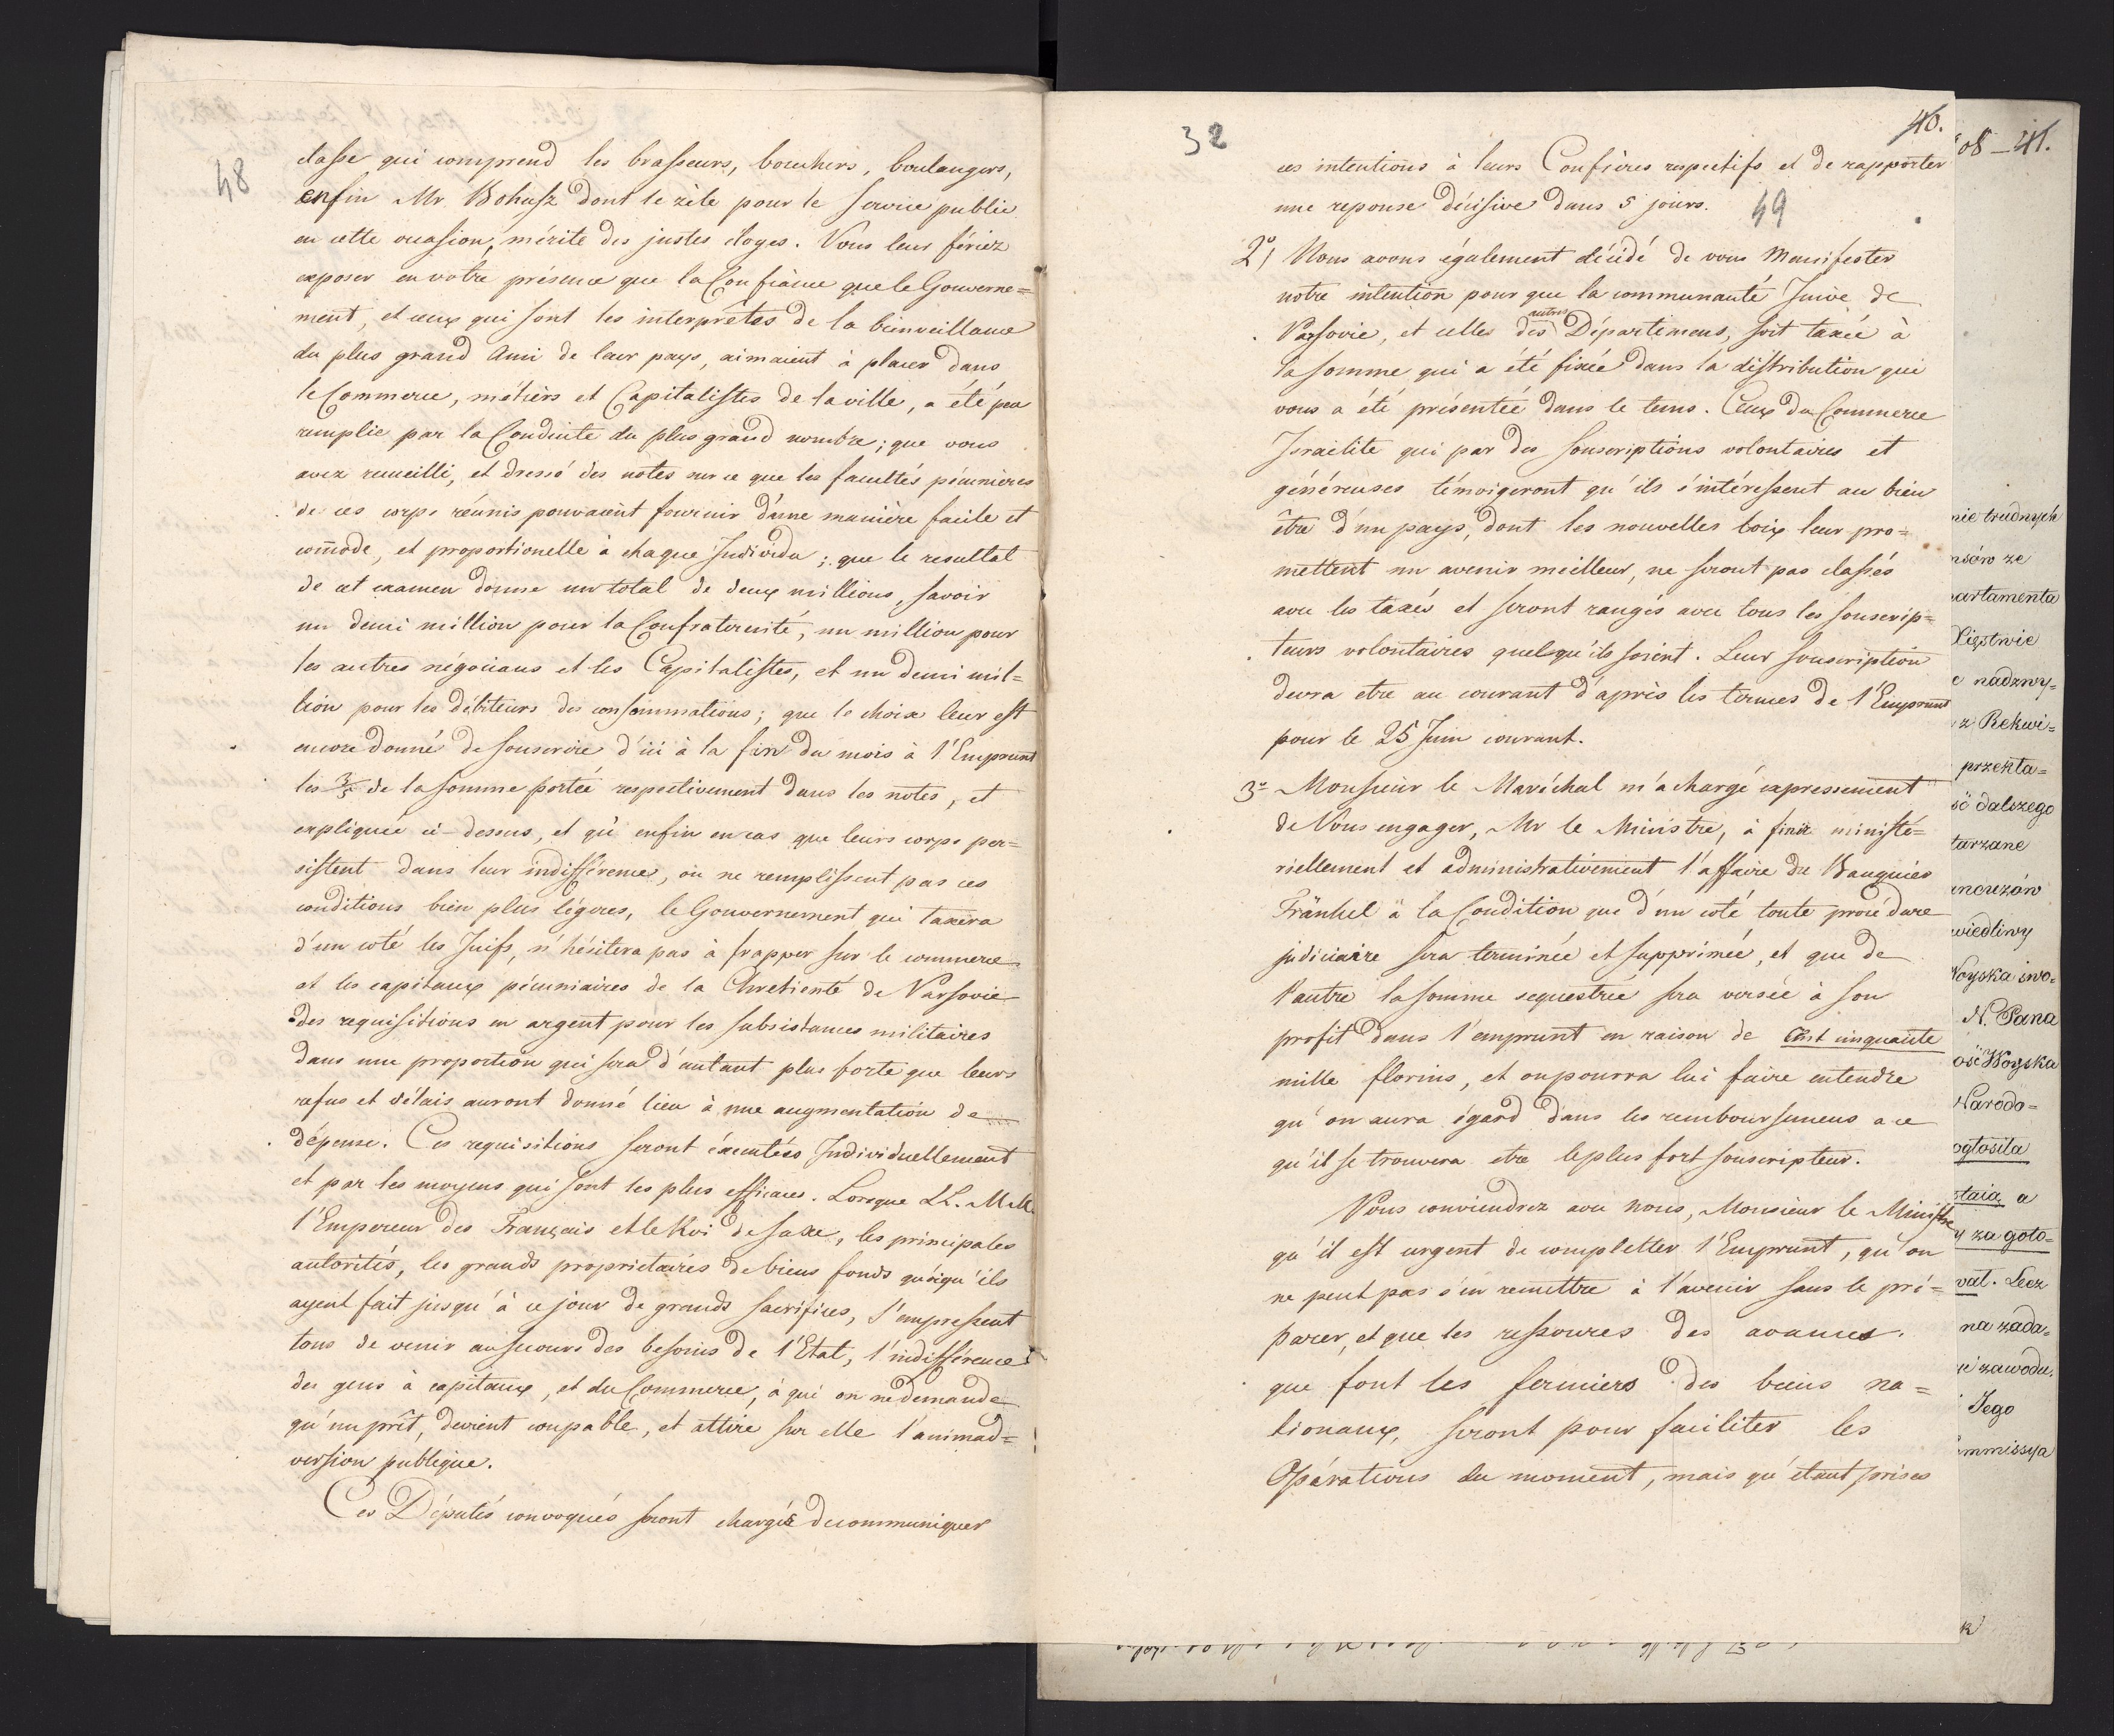 48
classe qui comprend les brasseurs, bouchers, boulangers,
enfin Mr. Bohusz dont le zèle pour le service public
en cette occasion, mérite des justes éloges. Vous leur fériez
exposer en votre présence que la Confiance que le Gouverne=
ment, et ceux qui sont les interprêtes de la bienveillance
du plus grand Ami de leur pays, aimaient à placer dans
le Commerce, métiers et Capitalistes de la ville, a été peu
remplie par la Conduite du plus grand nombre; que vous
avez recueilli, et dressé des notes sur ce que les facultés pécunières
de ces corps réunis pouvaient fournir d'une manière facile et
com̃ode, et proportionelle à chaque Individu; que le resultat
de cet examen donne un total de deux millions, savoir
un demi million pour la Confraternité, un million pour
les autres négocians et les Capitalistes, et un demi mil=
lion pour les débiteurs des consommations; que le choix leur est
encore donné de souscrire d'ici à la fin du mois à l'Emprunt
les 3/5 de la somme portée respectivement dans les notes, et
expliquée ci-dessus, et qu'enfin en cas que leurs corps per=
sistent dans leur indifférence, ou ne remplissent pas ces
conditions bien plus légères, le Gouvernement qui taxera
d'un coté les Juifs, n'hésitera pas à frapper sur le commerce
et les capitaux pécuniaires de la Chretienté de Varsovie
des requisitions en argent pour les subsistances militaires
dans une proportion qui sera d'autant plus forte que leurs
refus et délais auront donné lieu à une augmentation de
dépense. Ces requisitions seront éxecutées Individuellement
et par les moyens qui sont les plus efficaces. Lorsque LL. M.M.
l'Empereur des Français et le Roi de Saxe, les principales
autorités, les grands proprietaires de biens fonds quoiqu'ils
ayent fait jusqu'à ce jour de grands sacrifices, s'empressent
tous de venir au secours des besoins de l'Etat, l'indifférence
des gens à capitaux, et du Commerce, à qui on ne demande
qu'un prêt, devient coupable, et attire sur elle l'animad=
version publique.
Ces Députés convoqués seront chargés de communiquer
32
40.
ces intentions à leurs Confrères respectifs et de rapporter
une reponse décisive dans 5 jours.
49
2°/ Nous avons également décidé de vous Manifester
notre intention pour que la communauté Juive de
autres
Varsovie, et celles des Départemens, soit taxée à
la somme qui a été fixée dans la distribution qui
vous a été présentée dans le tems. Ceux du Commerce
Israelite qui par des souscriptions volontaires et
généreuses témoigeront qu'ils s'intéressent au bien
être d'un pays, dont les nouvelles loix leur pro=
mettent un avenir meilleur, ne seront pas classés
avec les taxés et seront rangés avec tous les souscrip=
teurs volontaires quelqu'ils soient. Leur souscription
devra etre au courant d'après les termes de l'Emprunt
pour le 25 Juin courant.
3° Monsieur le Maréchal m'a chargé expressement
de Vous engager, Mr le Ministre, à finir ministé=
riellement et administrativement l'affaire du Banquier
Fränkel à la Condition que d'un coté toute procédure
judiciaire sera terminée et supprimée, et que de
l'autre la somme sequestrée sera versée à son
profit dans l'emprunt en raison de Cent cinquante
mille florins, et on pourra lui faire entendre
qu'on aura égard dans les remboursemens a ce
qu'il se trouvera etre le plus fort souscripteur.
Vous conviendrez avec nous, Monsieur le Ministre
qu'il est urgent de completter l'Emprunt, qu'on
ne peut pas s'en remettre à l'avenir sans le pré=
parer, et que les ressources des avances
que font les fermiers des biens na=
tionaux, seront pour faciliter les
Opérations du moment, mais qu'étant prises
08 – 41.
nie trudnych
nsów ze
partamenta
Xięstwie
e nadzwy=
z Rekwi=
przekta=
dalszego
tarzane
ancuzów
wiedliwy
Woyska swo=
N. Pana
ość Woyska
Narodo=
ogłosiła
staią a
y za goto=
wał. Lecz
na zada=
zawodu.
Jego
mmissya